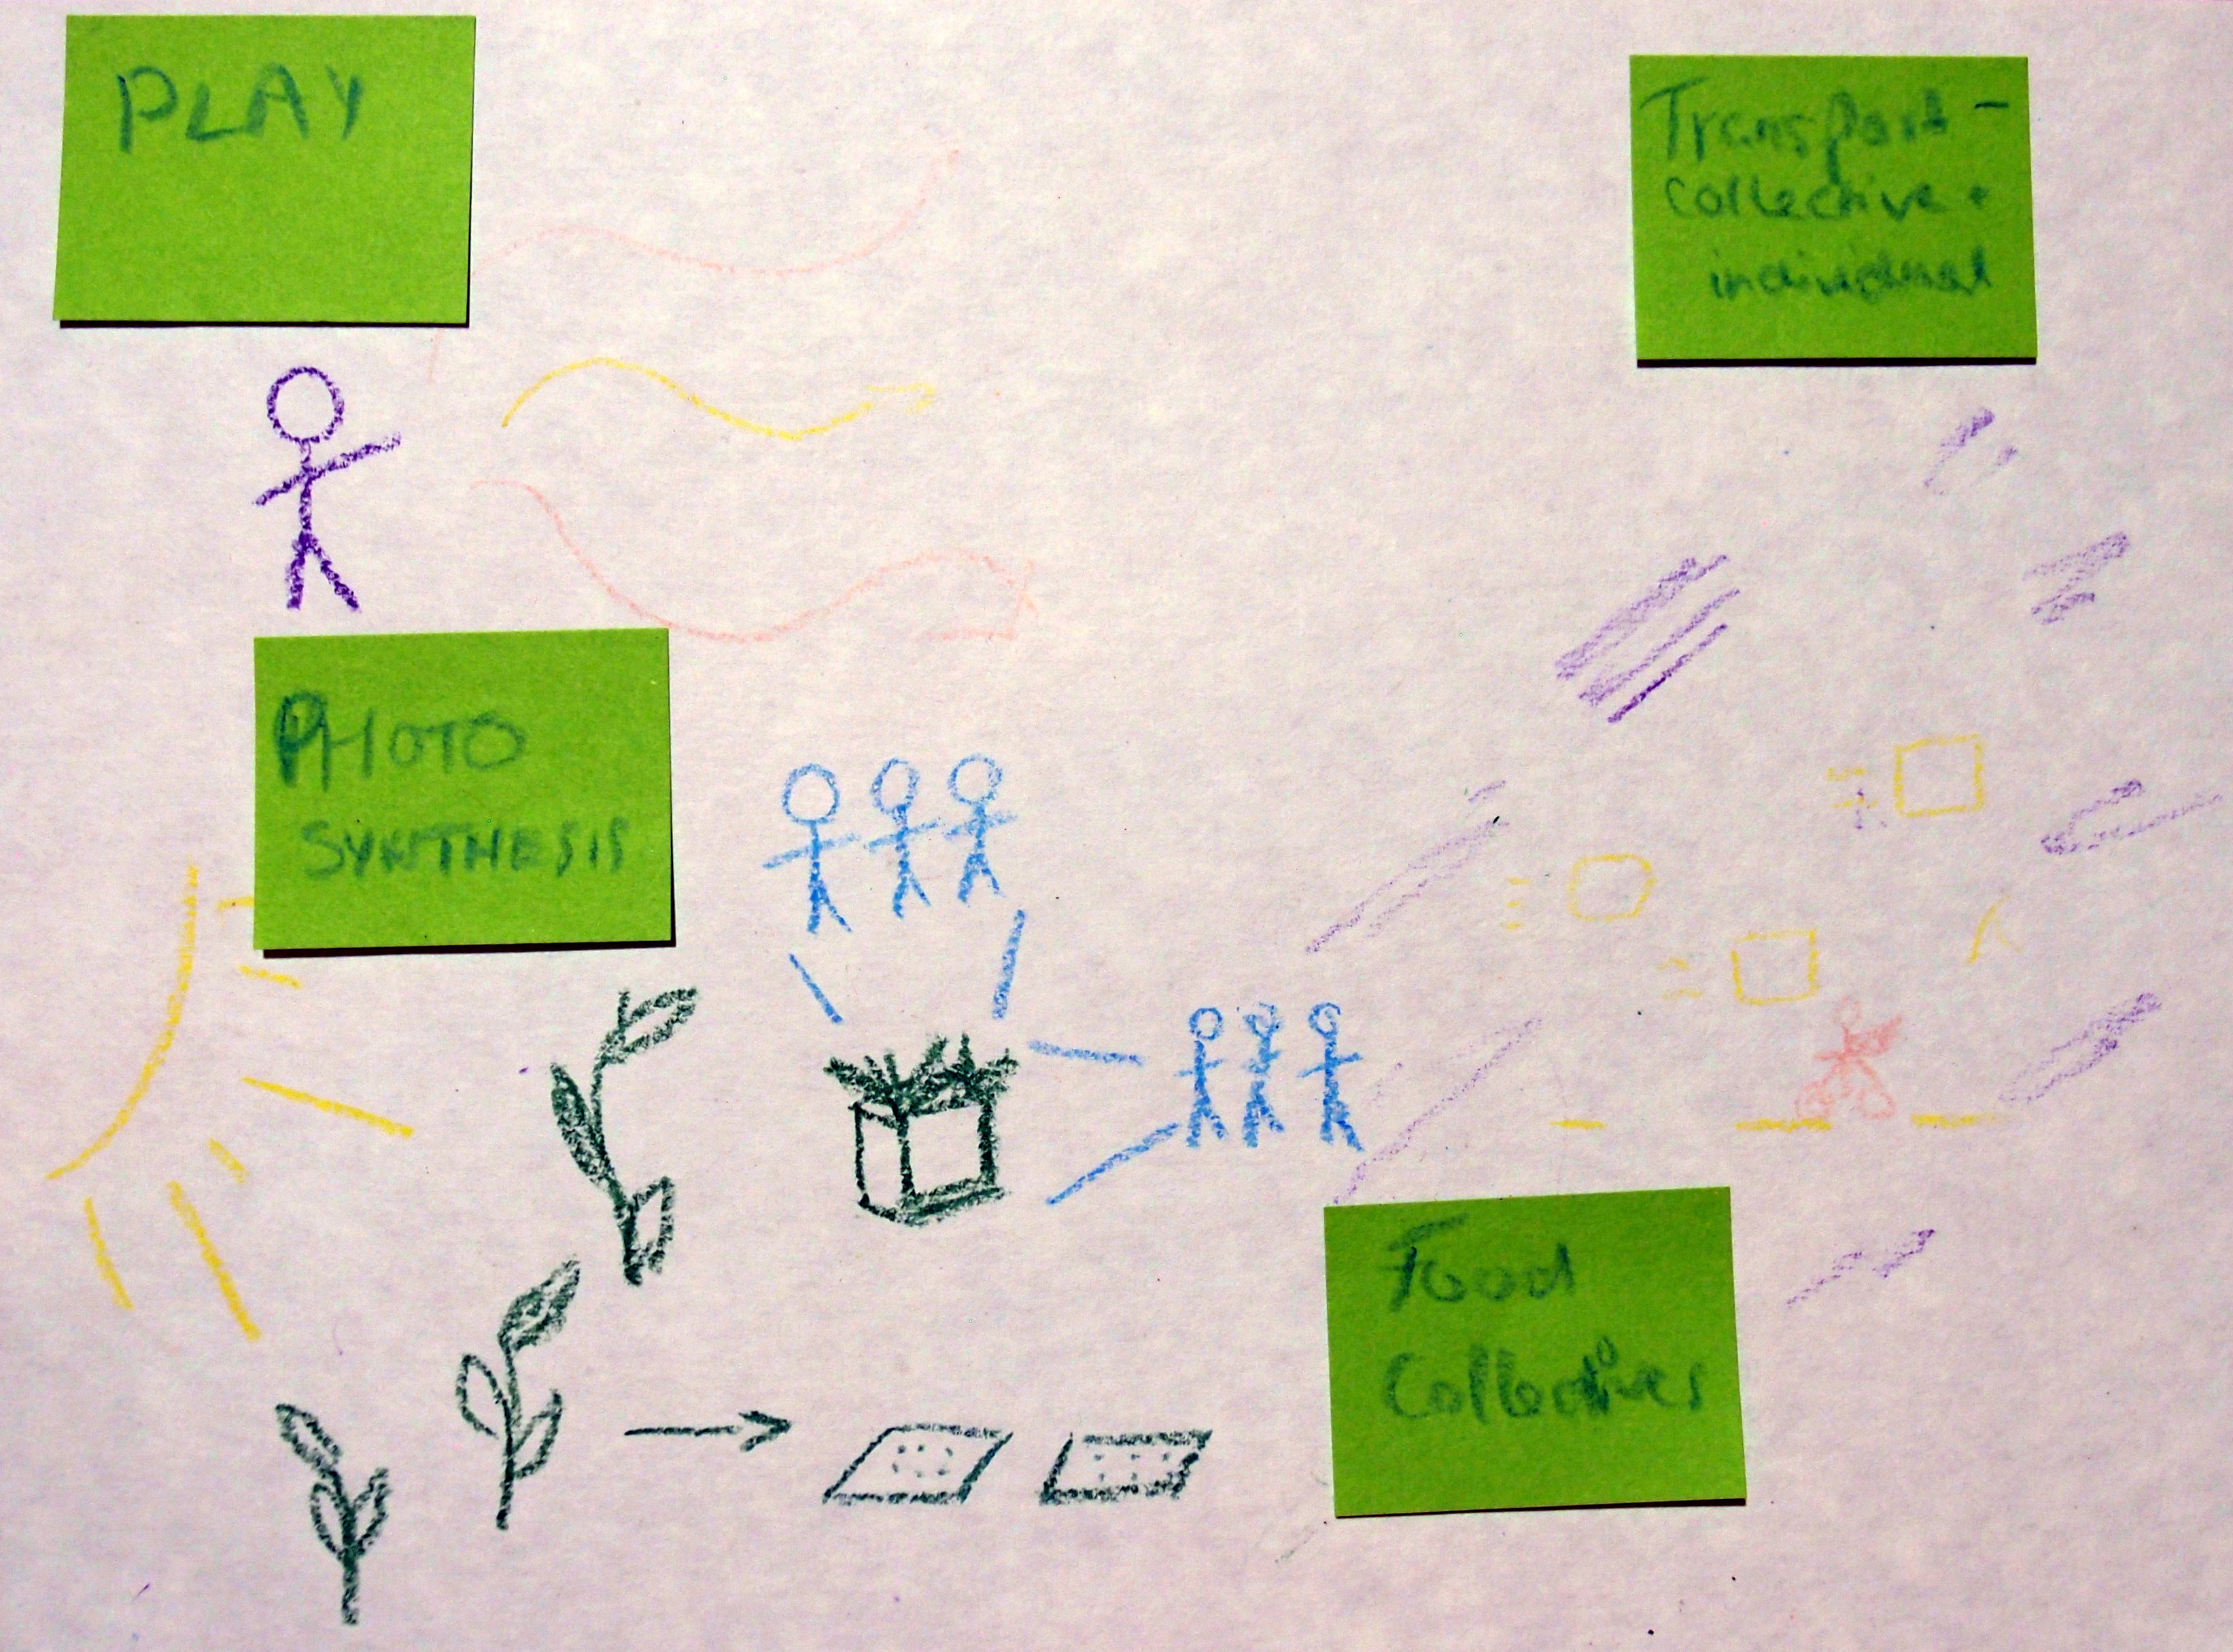 PLAY
Transport -
collective +
individual
PHOTO
SYNTHESIS
Food
Collectives